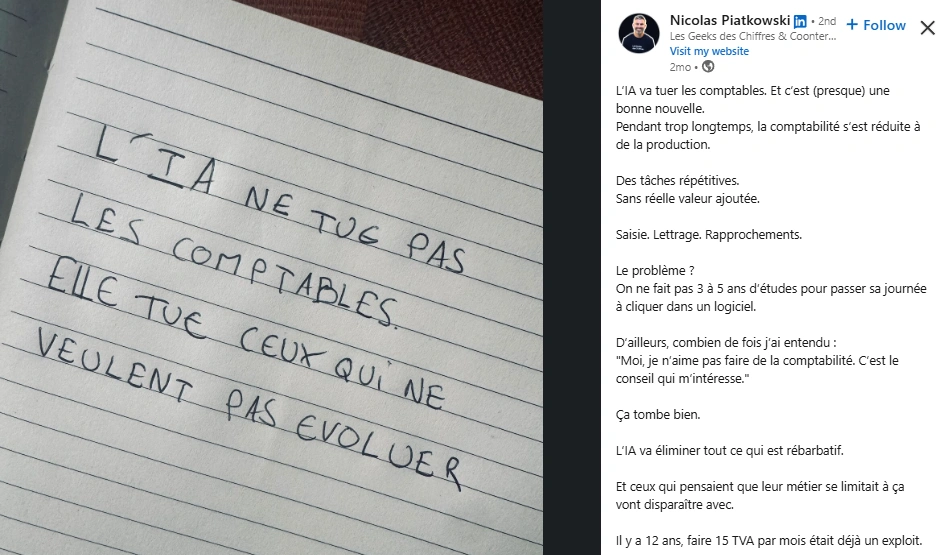 L'IA NE TUE PAS
LES COMPTABLES.
ELLE TUE CEUX QUI NE
VEULENT PAS EVOLUER
Nicolas Piatkowski in • 2nd
+ Follow
Les Geeks des Chiffres & Coonter...
Visit my website
2mo •
L'IA va tuer les comptables. Et c'est (presque) une
bonne nouvelle.
Pendant trop longtemps, la comptabilité s'est réduite à
de la production.
Des tâches répétitives.
Sans réelle valeur ajoutée.
Saisie. Lettrage. Rapprochements.
Le problème ?
On ne fait pas 3 à 5 ans d'études pour passer sa journée
à cliquer dans un logiciel.
D'ailleurs, combien de fois j'ai entendu :
"Moi, je n'aime pas faire de la comptabilité. C'est le
conseil qui m'intéresse."
Ça tombe bien.
L'IA va éliminer tout ce qui est rébarbatif.
Et ceux qui pensaient que leur métier se limitait à ça
vont disparaître avec.
Il y a 12 ans, faire 15 TVA par mois était déjà un exploit.